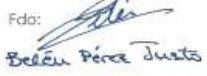 Fdo:
Belén Pérez Justo